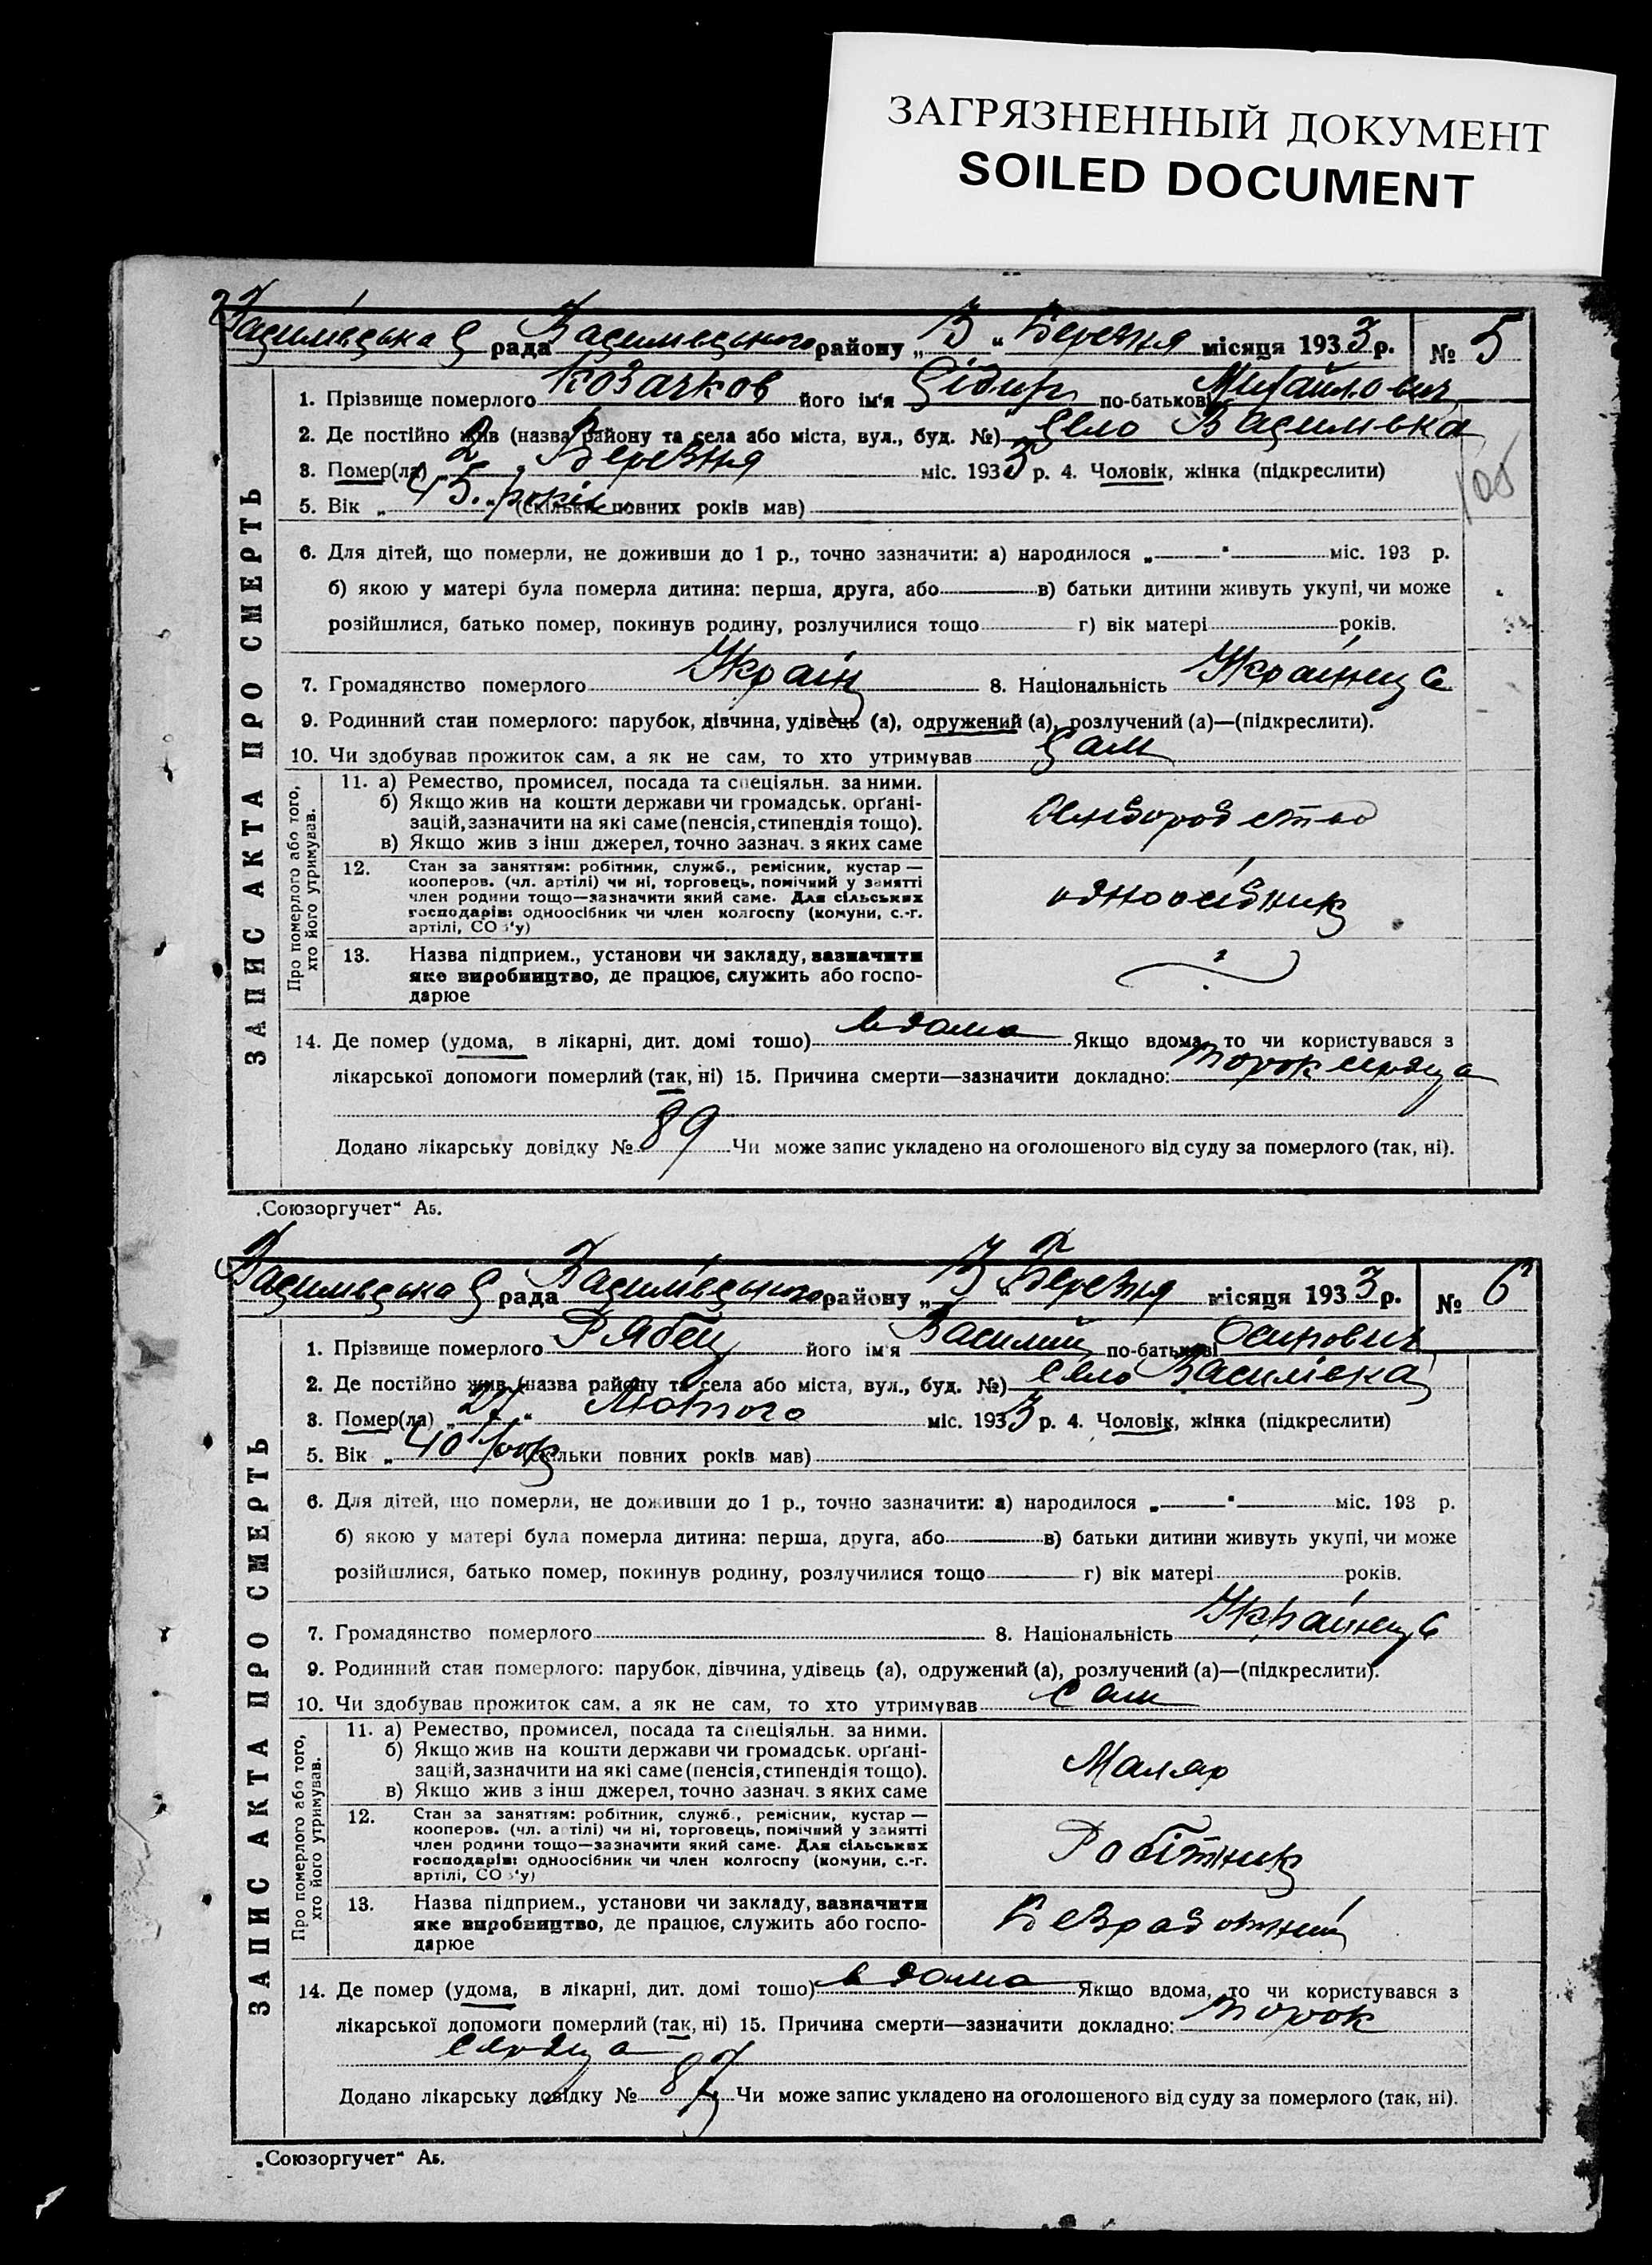 ЗАГРЯЗНЕННЫЙ ДОКУМЕНТ
SOILED DOCUMENT
Василівська С рада Василівського району „3“ Березня місяця 1933 р. № 5
ЗАПИС АКТА ПРО СМЕРТЬ
1. Прізвище померлого Козачков його ім'я Сідир по-батькові Михайлович
2. Де постійно жив (назва району та села або міста, вул., буд. №) село Василівка
3. Помер(ла) „2“ Березня міс. 1933 р. 4. Чоловік, жінка (підкреслити)
105
5. Вік „45“ років (скільки повних років мав)
6. Для дітей, що померли, не доживши до 1 р., точно зазначити: а) народилося „—“ міс. 193 р.
б) якою у матері була померла дитина: перша, друга, або в) батьки дитини живуть укупі, чи може
розійшлися, батько помер, покинув родину, розлучилися тощо г) вік матері років.
7. Громадянство померлого Україн 8. Національність Українець
9. Родинний стан померлого: парубок, дівчина, удівець (а), одружений (а), розлучений (а)—(підкреслити).
10. Чи здобував прожиток сам, а як не сам, то хто утримував Сам
Про померлого або того, хто його утримував.
11. а) Ремество, промисел, посада та спеціяльн. за ними.
б) Якщо жив на кошти держави чи громадськ. органі-
зацій, зазначити на які саме (пенсія, стипендія тощо).
в) Якщо жив з інш джерел, точно зазнач. з яких саме
12. Стан за заняттям: робітник, служб., ремісник, кустар —
кооперов. (чл. артілі) чи ні, торговець, помічний у занятті
член родини тощо—зазначити який саме. Для сільських
господарів: одноосібник чи член колгоспу (комуни, с.-г.
артілі, СОЗ'у)
одноосібник
13. Назва підприєм., установи чи закладу, зазначити
яке виробництво, де працює, служить або госпо-
дарює
14. Де помер (удома, в лікарні, дит. домі тошо) вдома Якщо вдома, то чи користувався з
лікарської допомоги померлий (так, ні) 15. Причина смерти—зазначити докладно: порок сердца
Додано лікарську довідку № 89 Чи може запис укладено на оголошеного від суду за померлого (так, ні).
„Союзоргучет“ А5.
Василівська С рада Василівського району „3“ Березня місяця 1933 р. № 6
ЗАПИС АКТА ПРО СМЕРТЬ
1. Прізвище померлого Рябец його ім'я Василий по-батькові Осипович
2. Де постійно жив (назва району та села або міста, вул., буд. №) село Василівка
3. Помер(ла) „27“ Лютого міс. 1933 р. 4. Чоловік, жінка (підкреслити)
5. Вік „40“ рок (скільки повних років мав)
6. Для дітей, що померли, не доживши до 1 р., точно зазначити: а) народилося „—“ міс. 193 р.
б) якою у матері була померла дитина: перша, друга, або в) батьки дитини живуть укупі, чи може
розійшлися, батько помер, покинув родину, розлучилися тощо г) вік матері років.
7. Громадянство померлого 8. Національність Українець
9. Родинний стан померлого: парубок, дівчина, удівець (а), одружений (а), розлучений (а)—(підкреслити).
10. Чи здобував прожиток сам, а як не сам, то хто утримував сам
Про померлого або того, хто його утримував.
11. а) Ремество, промисел, посада та спеціяльн. за ними.
б) Якщо жив на кошти держави чи громадськ. органі-
зацій, зазначити на які саме (пенсія, стипендія тощо).
в) Якщо жив з інш джерел, точно зазнач. з яких саме
Маляр
12. Стан за заняттям: робітник, служб., ремісник, кустар —
кооперов. (чл. артілі) чи ні, торговець, помічний у занятті
член родини тощо—зазначити який саме. Для сільських
господарів: одноосібник чи член колгоспу (комуни, с.-г.
артілі, СОЗ'у)
Робітник
13. Назва підприєм., установи чи закладу, зазначити
яке виробництво, де працює, служить або госпо-
дарює
Безработний
14. Де помер (удома, в лікарні, дит. домі тошо) вдома Якщо вдома, то чи користувався з
лікарської допомоги померлий (так, ні) 15. Причина смерти—зазначити докладно: порок
сердца
Додано лікарську довідку № 87 Чи може запис укладено на оголошеного від суду за померлого (так, ні).
„Союзоргучет“ А5.